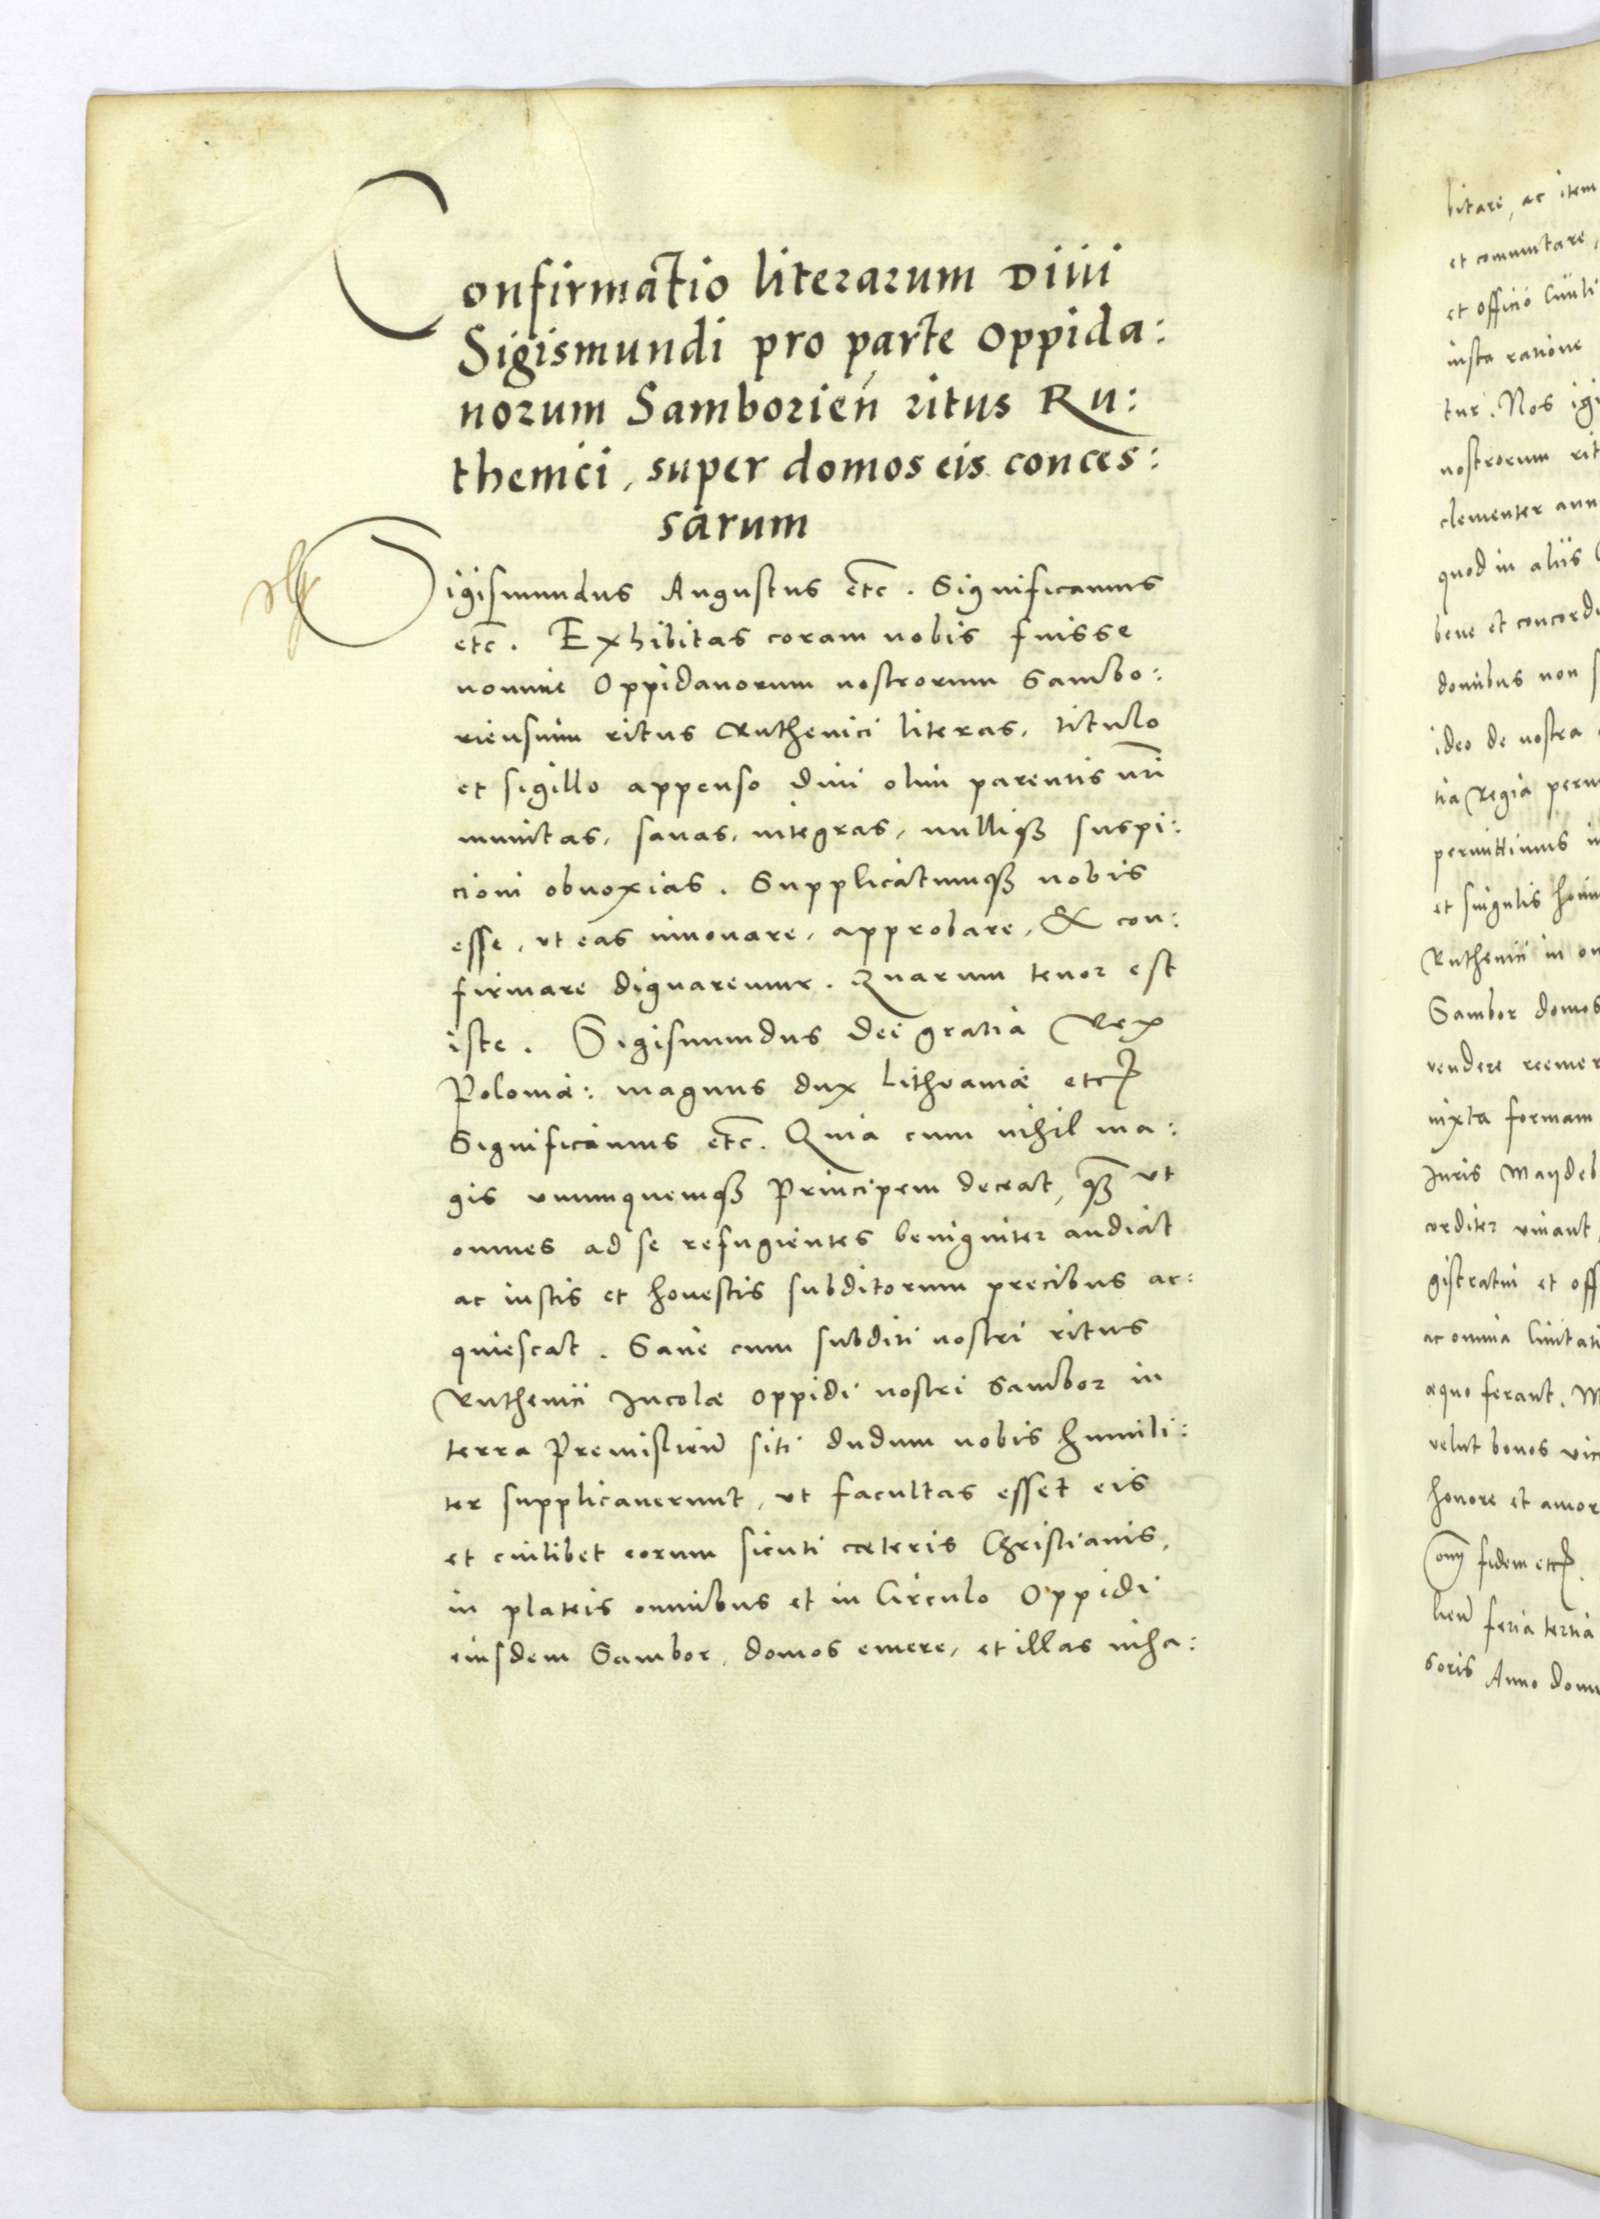 Confirmatio literarum Diui
Sigismundi pro parte oppida:
norum Samborień ritus Ru:
thenici, super domos eis conces:
sarum
Sigismundus Augustus etc. Significamus
etc. Exhibitas coram nobis fuisse
nomine Oppidanorum nostrorum Sambo:
riensium ritus Ruthenici literas, titulo
et sigillo appenso diui olim parentis nri
munitas, sanas, integras, nulliqȝ suspi:
cioni obnoxias. Supplicatumqȝ nobis
esse, vt eas innouare, approbare, & con:
firmare dignaremur. Quarum tenor est
iste. Sigismundus dei gratia Rex
Poloniæ: magnus dux Lithvaniæ etc
Significamus etc. Quia cum nihil ma:
gis vnumquemqȝ Principem deceat, qȝ vt
omnes ad se refugientes benigniter audiat
ac iustis et honestis subditorum precibus ac:
quiescat. Sane cum subditi nostri ritus
Ruthenici Incolæ oppidi nostri Sambor in
terra Premislień siti dudum nobis humili:
ter supplicauerunt, vt facultas esset eis
et cuilibet eorum sicuti cæteris Christianis,
in plateis omnibus et in Circulo Oppidi
eiusdem Sambor, domos emere, et illas inha:
bitare, ac item
et commutare,
et officio Ciuili
iusta ratione
tur. Nos igi
nostrorum rit
clementer ann
quod in aliis
bene et concord
domibus non
ideo de nostra
tia Regia perm
permittimus
et singulis homi
Ruthenici in om
Sambor domos
vendere reemer
iuxta formam
Iuris Maydeb
corditer viuant,
gistratui et off
ac omnia Ciuitati
æquo ferant. M
velut bonos vic
honore et amor
fidem etc.
feria tertia
soris Anno domi